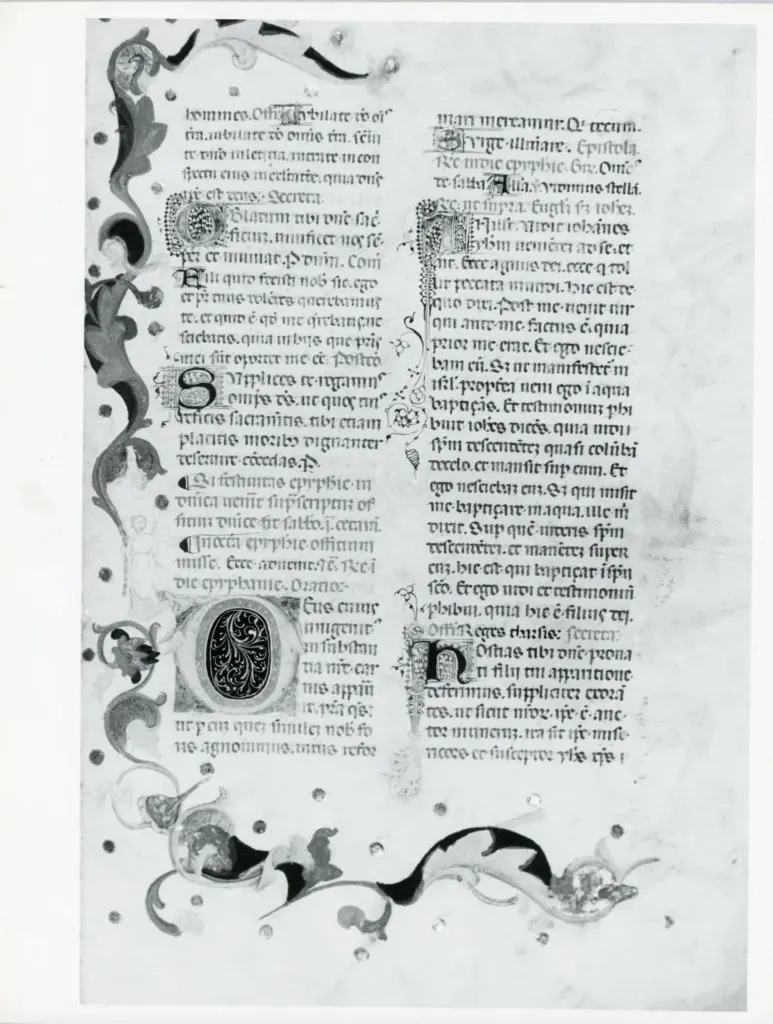 homines. Off. Iubilate dō oīs
tr̄a. iubilate dō omnis tr̄a. ſeruī
te dn̄o in letitia. intrate in con
ſpectu eius in exultat̄e. quia dn̄s
ip̄e eſt deus. Secreta.
OBlatum tibi dn̄e ſac̄
ficiū. uiuificet nos sē
per et muniat. P. dn̄m. Com̄
Fili quid feciſti nob̄ ſic. ego
et pr̄ tuus dolētes querebamus
te. et quid ē qd̄ me q̄rebatis. ne
ſciebatis. quia in hiis que pr̄is
mei ſūt oportet me eē. Poſtcō
SUpplices te rogamus
omīps ds̄. ut quos tuis
reficis ſacram̄tis. tibi etiam
placitis moribȝ dignanter
deſeruire cōcedas. P.
Si feſtiuitas epyphīe in
dn̄ica uenerit ſup̄ſcriptum of
ficium dn̄ice fit ſabb̄o.
In octa epyphīe officium
miſſe. Ecce aduenit. Rē. ī
die epyphanie. Oratio.
DEus cuius
unigenitꝰ
in ſubſtan
tia nr̄e car
nis appāu
it. pr̄a qs̄.
ut p eum quem ſimilem nob̄ fo
ris agnouimus. intus refor
mari mereamur. Q. tecum.
Surge illuminare. Epiſtola.
Re. in die epyphīe. Gr. Om̄s
de ſabba. Alla. Vidimus ſtellā.
Re. ut ſupra. Eugl̄i ſ. ioh̄ez.
IN illo t. Vidit ioh̄anes
yh̄m uenientē ad ſe. et
ait. Ecce agnus dei. ecce q tol
lit peccata mundi. hic eſt de
quo dixi. Poſt me uenit uir
qui ante me factus ē. quia
prior me erat. Et ego neſcie
bam eū. Sȝ ut manifeſtet̄ in
iſrl̄. propt̄ea ueni ego ī aqua
baptiçās. Et teſtimonium phi
buit ioh̄es dicēs. quia uidi
ſpm̄ deſcendētez quaſi colūbā
de celo. et manſit ſup eum. Et
ego neſciebaȝ eū. Sȝ qui miſit
me baptiçare in aqua. ille m̄
dixit. Sup quē uideris ſpm̄
deſcendētez. et manētez ſuper
eū. hic eſt qui baptiçat ī ſpū
ſcō. Et ego uidi et teſtimoniū
phibui. quia hic ē filius dei.
Off. Reges tharſis. ſecreta.
HOſtias tibi dn̄e pro na
ti filii tui apparitione
deferimus. ſuppliciter exorā
tes. ut ſicut ip̄e ē auc
tor munerum. ita ſit ip̄e miſe
ricors et ſuſceptor yh̄s xp̄s